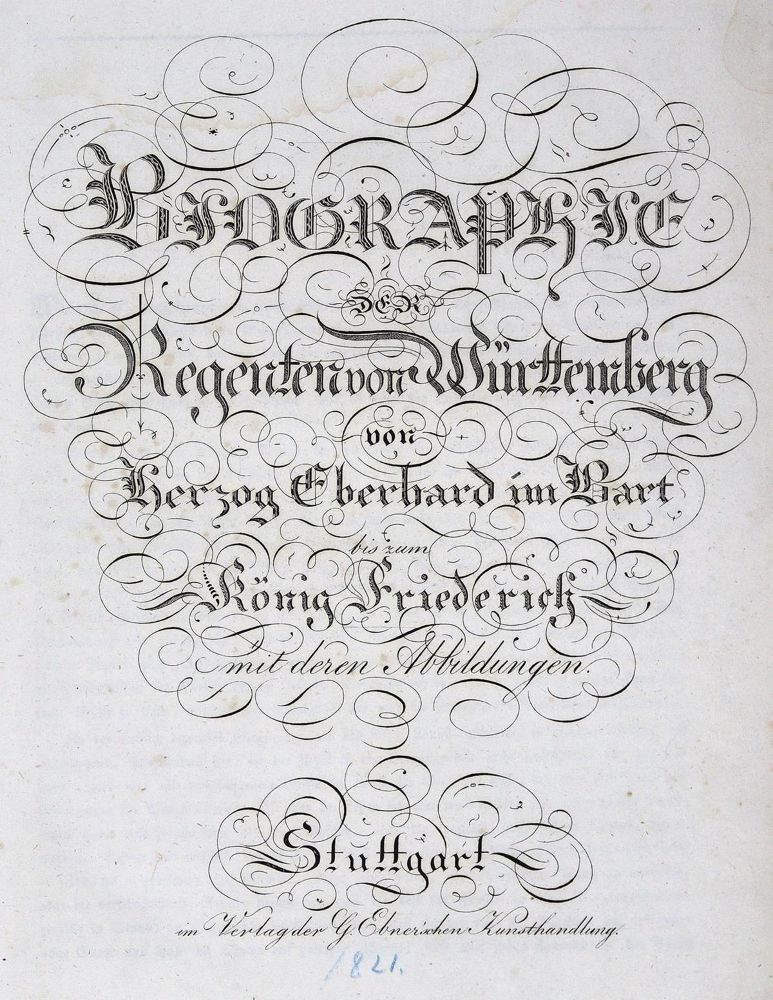 BIOGRAPHIE
DER
Regenten von Württemberg
von
Herzog Eberhard im Bart
bis zum
König Friederich
mit deren Abbildungen.
Stuttgart
im Verlag der G. Ebner'schen Kunsthandlung.
1821.